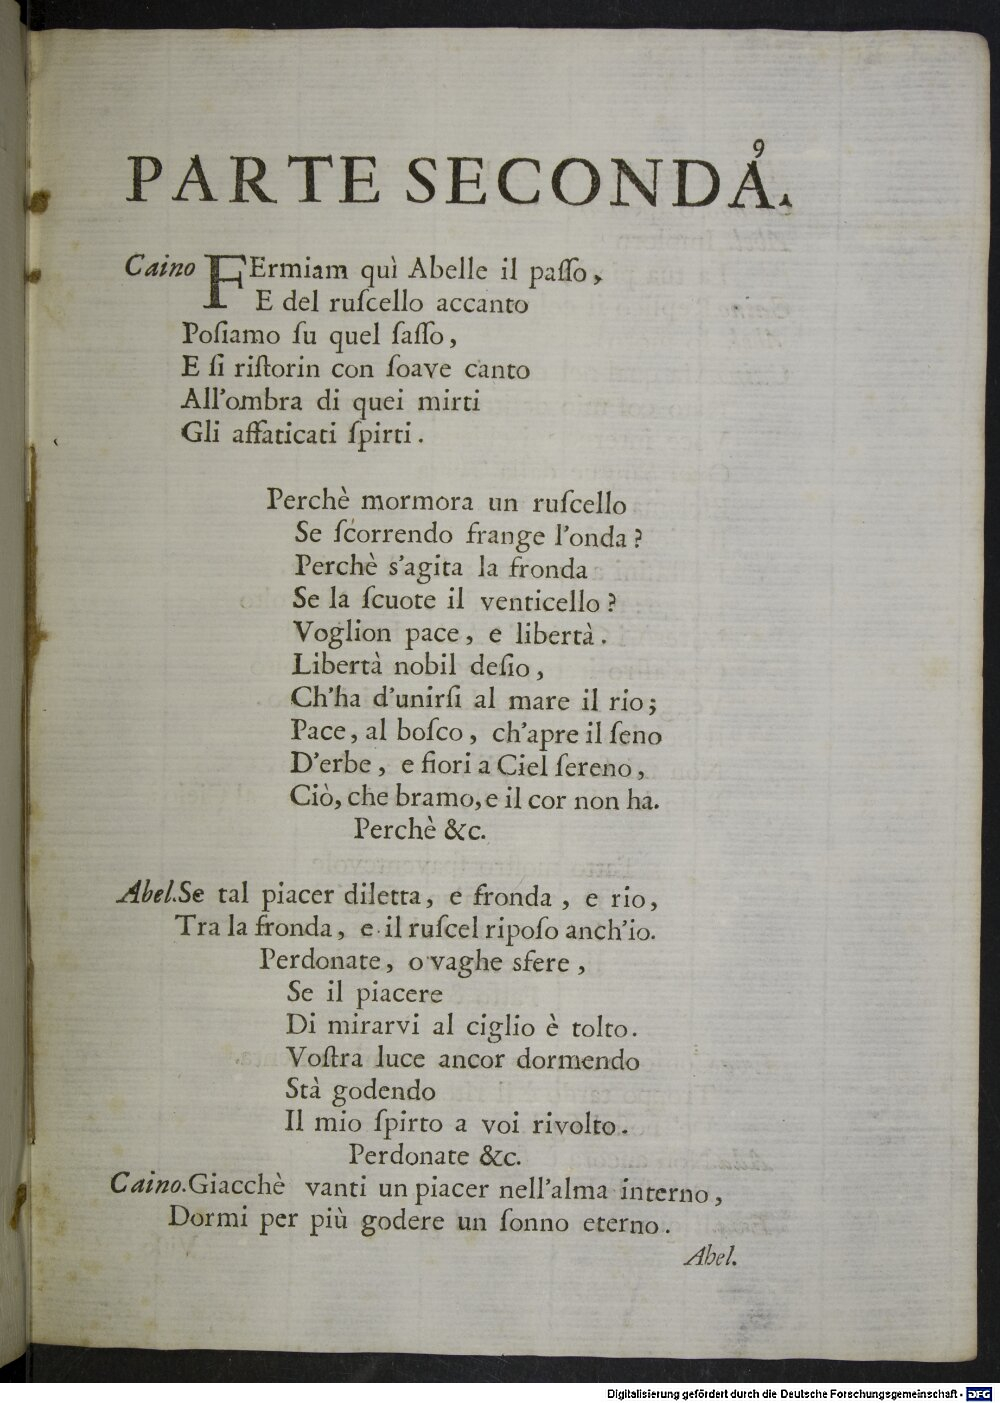 9
PARTE SECONDA.
Caino FErmiam quì Abelle il paſſo,
E del ruſcello accanto
Poſiamo ſu quel ſaſſo,
E ſi riſtorin con ſoave canto
All'ombra di quei mirti
Gli affaticati ſpirti.
Perchè mormora un ruſcello
Se ſcorrendo frange l'onda?
Perchè s'agita la fronda
Se la ſcuote il venticello?
Voglion pace, e libertà.
Libertà nobil deſio,
Ch'ha d'unirſi al mare il rio;
Pace, al boſco, ch'apre il ſeno
D'erbe, e fiori a Ciel ſereno,
Ciò, che bramo, e il cor non ha.
Perchè &c.
Abel. Se tal piacer diletta, e fronda, e rio,
Tra la fronda, e il ruſcel ripoſo anch'io.
Perdonate, o vaghe sfere,
Se il piacere
Di mirarvi al ciglio è tolto.
Voſtra luce ancor dormendo
Stà godendo
Il mio ſpirto a voi rivolto.
Perdonate &c.
Caino. Giacchè vanti un piacer nell'alma interno,
Dormi per più godere un ſonno eterno.
Abel.
Digitalisierung gefördert durch die Deutsche Forschungsgemeinschaft - DFG